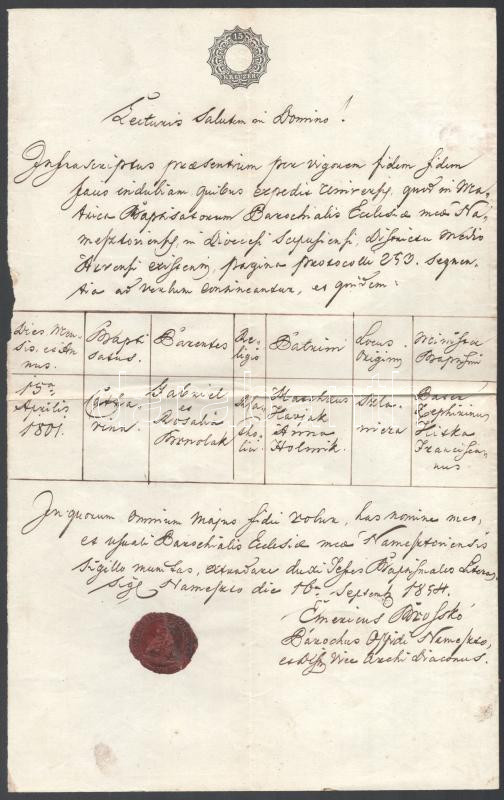 15
KREUZER
Lecturis Salutem in Domino!
Infrascriptus praesentium per vigorem fidem fidem
facio indubiam quibus expedit Universis, quod in Ma-
trica Baptisatorum Parochialis Ecclesiae meae Na-
mesztoviensis, in Diocesi Scepusiensi, Districtu Medio
Arvensi existenti, pagina protocolli 253. sequen-
tia ad verbum contineantur, et quidem:
Dies, Men-
sis, et An-
nus.
Bapti
satus.
Parentes
Re-
ligio
Patrini
Locus
Originis
Minister
Baptismi
15a
Aprilis
1801.
Catha-
rina
Gabriel
et
Rosalia
Mathaeus
Anna
Pater
Francisca-
nus
In quorum omnium majus fidei robur, has nomine meo,
et usuali Parochialis Ecclesiae meae Namesztoviensis
Sigillo munitas, extradare dedi Testes Baptismales Literas
Sigl Nameszto die 16a Septemb 1854.
Emericus
Parochus Namesto,
Vice Archi Diaconus.